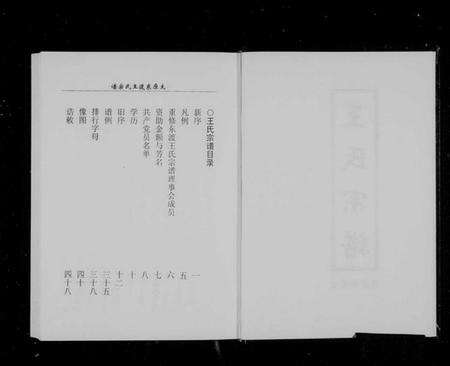 太原东渡王氏宗谱
○王氏宗谱目录
新序 一
凡例 五
重修东渡王氏宗谱理事会成员 六
资助金额与芳名 七
共产党员名单 八
学历 十
旧序 十二
谱例 三十五
排行字母 三十八
像图 四十
诰敕 四十八
王氏宗谱